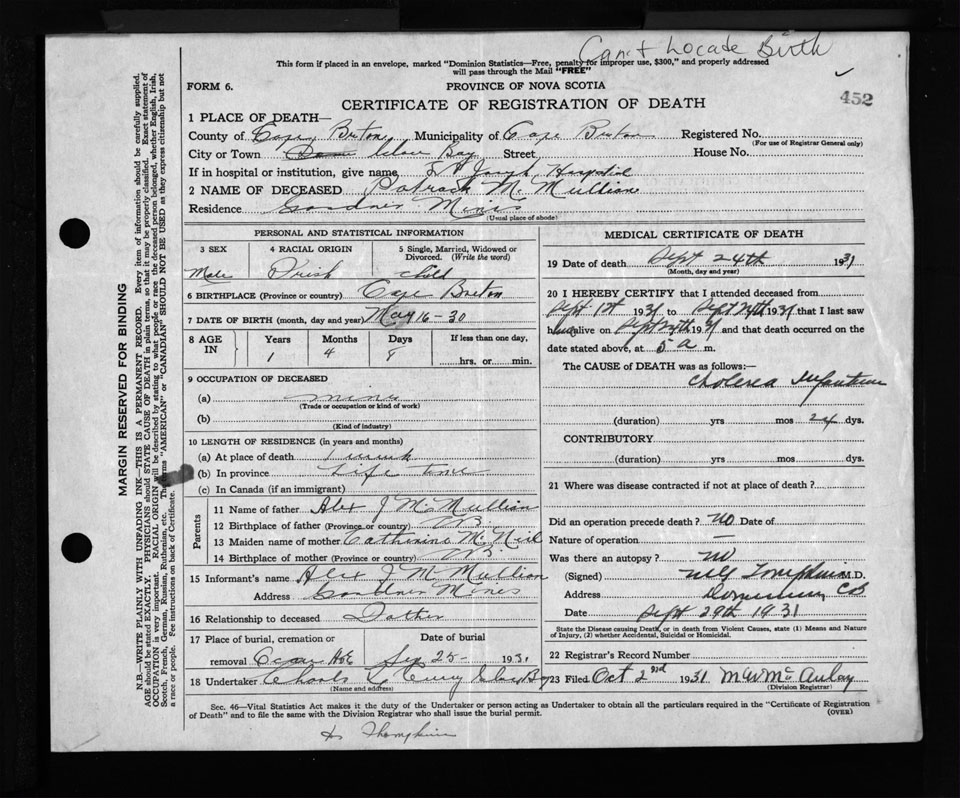 Can't Locate Birth
This form if placed in an envelope, marked "Dominion Statistics—Free, penalty for improper use, $300," and properly addressed
will pass through the Mail "FREE"
FORM 6.
PROVINCE OF NOVA SCOTIA
452
CERTIFICATE OF REGISTRATION OF DEATH
1 PLACE OF DEATH—
County of Cape Breton Municipality of Cape Breton Registered No.
(For use of Registrar General only)
City or Town Glace Bay Street, House No.
If in hospital or institution, give name, St Joseph Hospital
2 NAME OF DECEASED Patrick McMullian
Residence Gardner Mines
(Usual place of abode)
PERSONAL AND STATISTICAL INFORMATION
3 SEX 4 RACIAL ORIGIN 5 Single, Married, Widowed or Divorced. (Write the word)
Male Irish child
6 BIRTHPLACE (Province or country) Cape Breton
7 DATE OF BIRTH (month, day and year) May 16-30
8 AGE IN Years Months Days If less than one day,
1 4 8 hrs. or min.
9 OCCUPATION OF DECEASED
(a)
(Trade or occupation or kind of work)
(b)
(Kind of industry)
10 LENGTH OF RESIDENCE (in years and months)
(a) At place of death 1 week
(b) In province Life time
(c) In Canada (if an immigrant)
Parents
11 Name of father Alex J McMullian
12 Birthplace of father (Province or country) CB
13 Maiden name of mother Catherine McNeil
14 Birthplace of mother (Province or country) CB
15 Informant's name Alex J McMullian
Address Gardner Mines
16 Relationship to deceased Father
17 Place of burial, cremation or Date of burial
removal Sep 25- 1931
18 Undertaker Curry Glace Bay
(Name and address)
MEDICAL CERTIFICATE OF DEATH
19 Date of death Sept 24th 1931
(Month, day and year)
20 I HEREBY CERTIFY that I attended deceased from
Sept 1st 1931 to Sept 24th 1931 that I last saw
him alive on Sept 24th 1931 and that death occurred on the
date stated above, at 5 a m.
The CAUSE OF DEATH was as follows:—
Cholerea Infantum
(duration) yrs mos 24 dys.
CONTRIBUTORY
(duration) yrs. mos. dys.
21 Where was disease contracted if not at place of death?
Did an operation precede death? no Date of
Nature of operation —
Was there an autopsy? no
(Signed) Tompkins M.D.
Address Dominion CB
Date Sept 29th 1931
State the Disease causing Death, or in death from Violent Causes, state (1) Means and Nature
of Injury, (2) whether Accidental, Suicidal or Homicidal.
22 Registrar's Record Number
23 Filed Oct 2nd 1931 M W McAulay
(Division Registrar)
Sec. 46—Vital Statistics Act makes it the duty of the Undertaker or person acting as Undertaker to obtain all the particulars required in the "Certificate of Registration
of Death" and to file the same with the Division Registrar who shall issue the burial permit. (OVER)
Thompkins
MARGIN RESERVED FOR BINDING
N.B.—WRITE PLAINLY WITH UNFADING INK—THIS IS A PERMANENT RECORD. Every item of information should be carefully supplied.
AGE should be stated EXACTLY. PHYSICIANS should STATE CAUSE OF DEATH in plain terms, so that it may be properly classified. Exact statement of
OCCUPATION is very important. RACIAL ORIGIN will be described by stating to what people or race the deceased person belonged, whether English, Irish,
Scotch, French, German, Russian, Ruthenian, etc. The terms "AMERICAN" or "CANADIAN" SHOULD NOT BE USED as they express citizenship but not
a race or people. Fee instructions on back of Certificate.